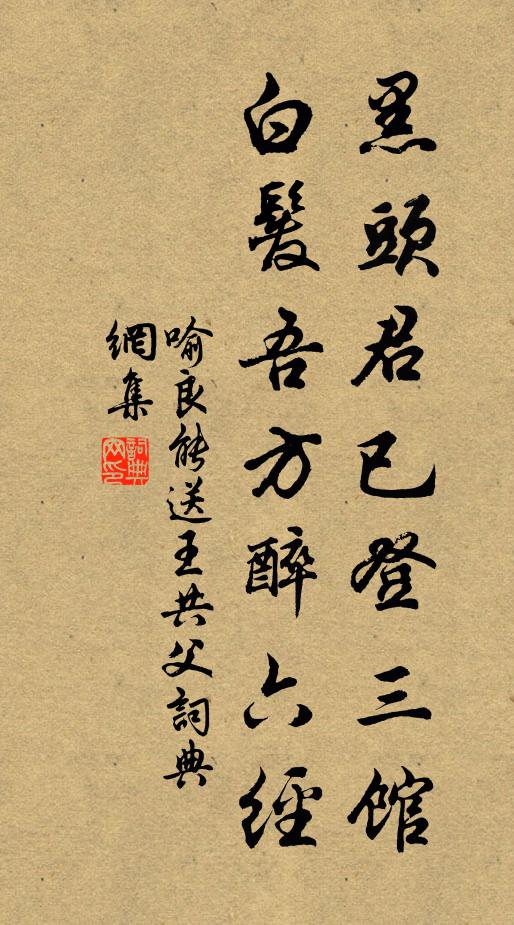 黑頭君已登三館
白髮吾方醉六經
喻良能送王共父詞典
網集
詞典
網印